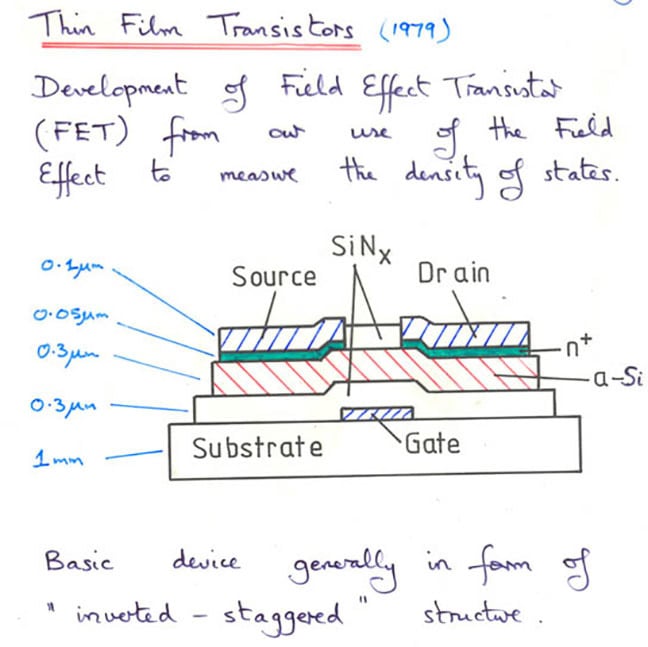 Thin Film Transistors (1979)
Development of Field Effect Transistor
(FET) from our use of the Field
Effect to measure the density of states.
SiNx
0.1μm
Source
Drain
0.05μm
0.3μm
n+
a-Si
0.3μm
Substrate
Gate
1mm
Basic device generally in form of
"inverted - staggered" structure.